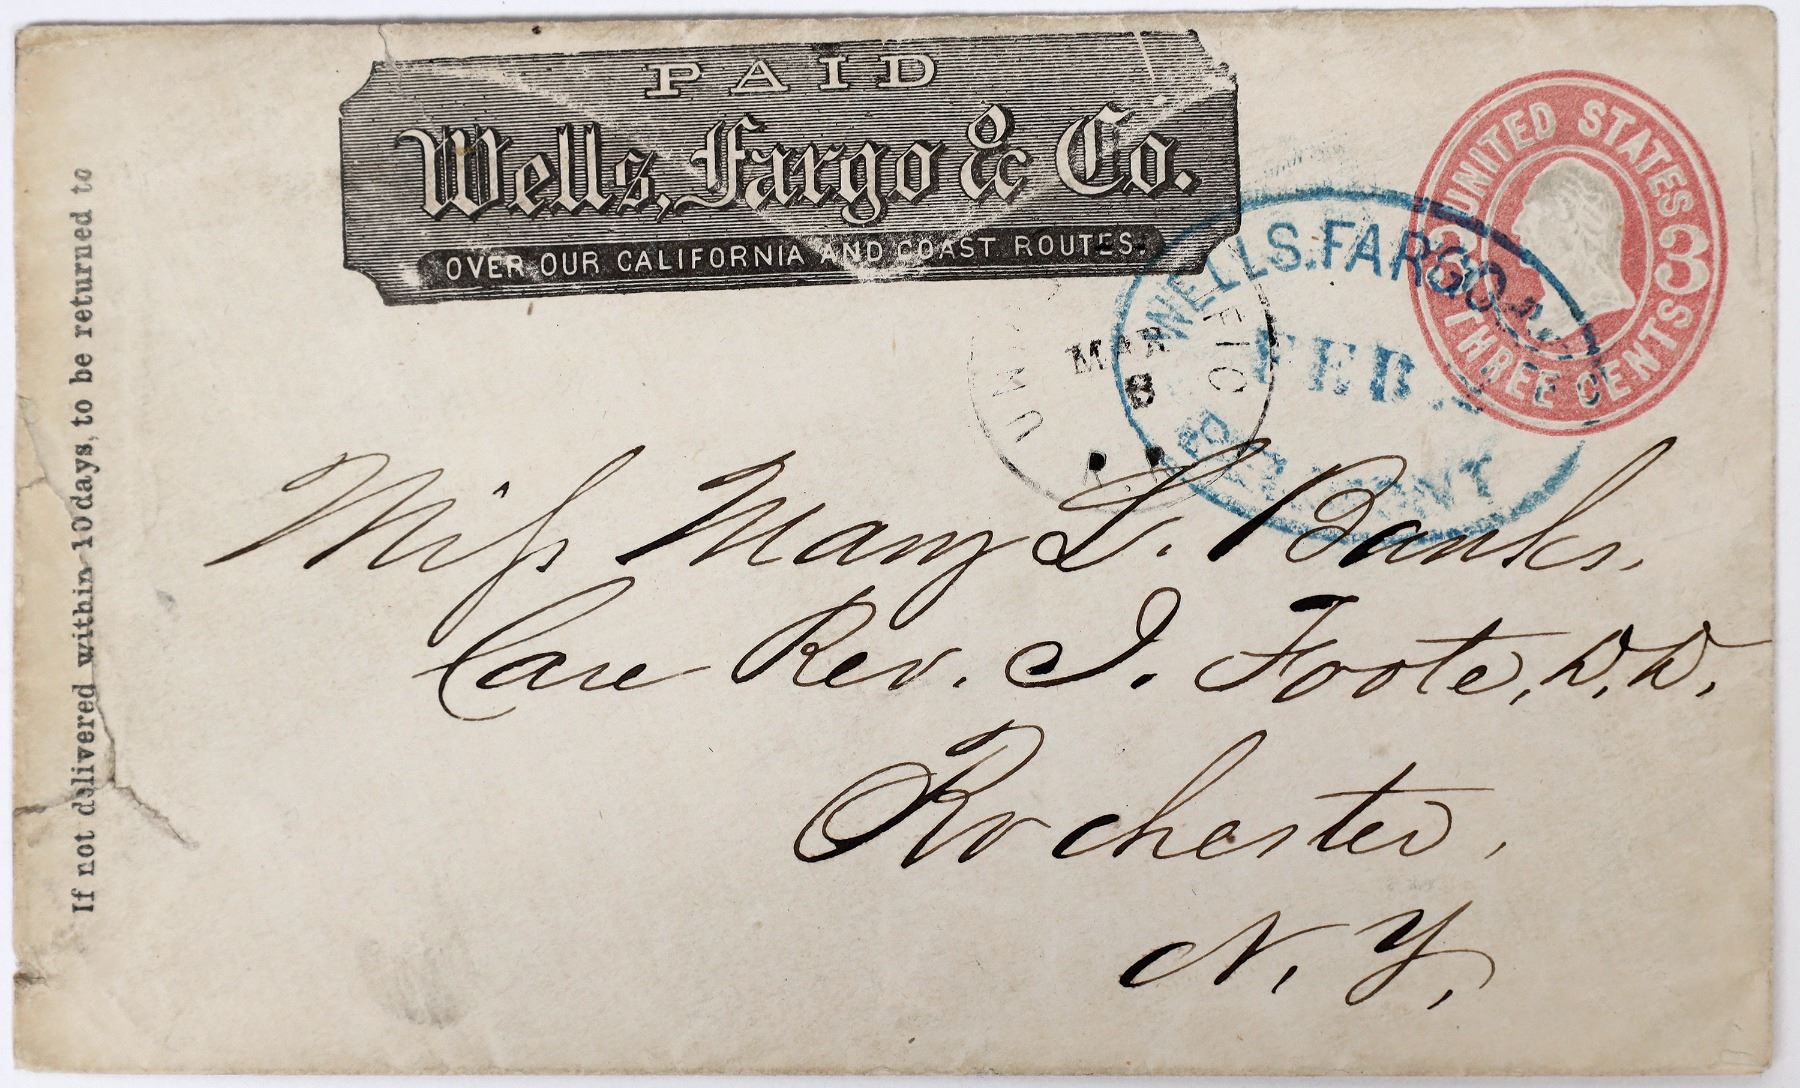 PAID
Wells, Fargo & Co.
OVER OUR CALIFORNIA AND COAST ROUTES.
UNITED STATES
3 3
THREE CENTS
WELLS. FARGO
FEB.
MAR
8
R. R.
If not delivered within 10 days, to be returned to
Miss Mary L. Banks.
Care Rev. I. Foote, D.D.
Rochester,
N. Y.